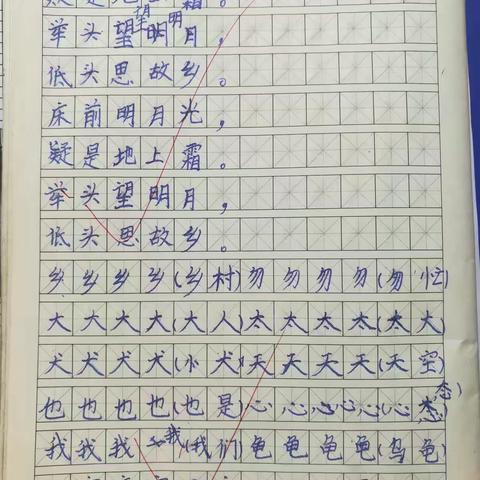 疑是地上霜。
举头望明月，
低头思故乡。
床前明月光，
疑是地上霜。
举头望明月，
低头思故乡。
乡乡乡乡(乡村)勿勿勿勿(勿忙)
大大大大(大人)太太太太(太大)
犬犬犬犬(小犬)天天天天(天空)
也也也也(也是)心心心心心(心态)
我我我我(我们)龟龟龟龟(乌龟)